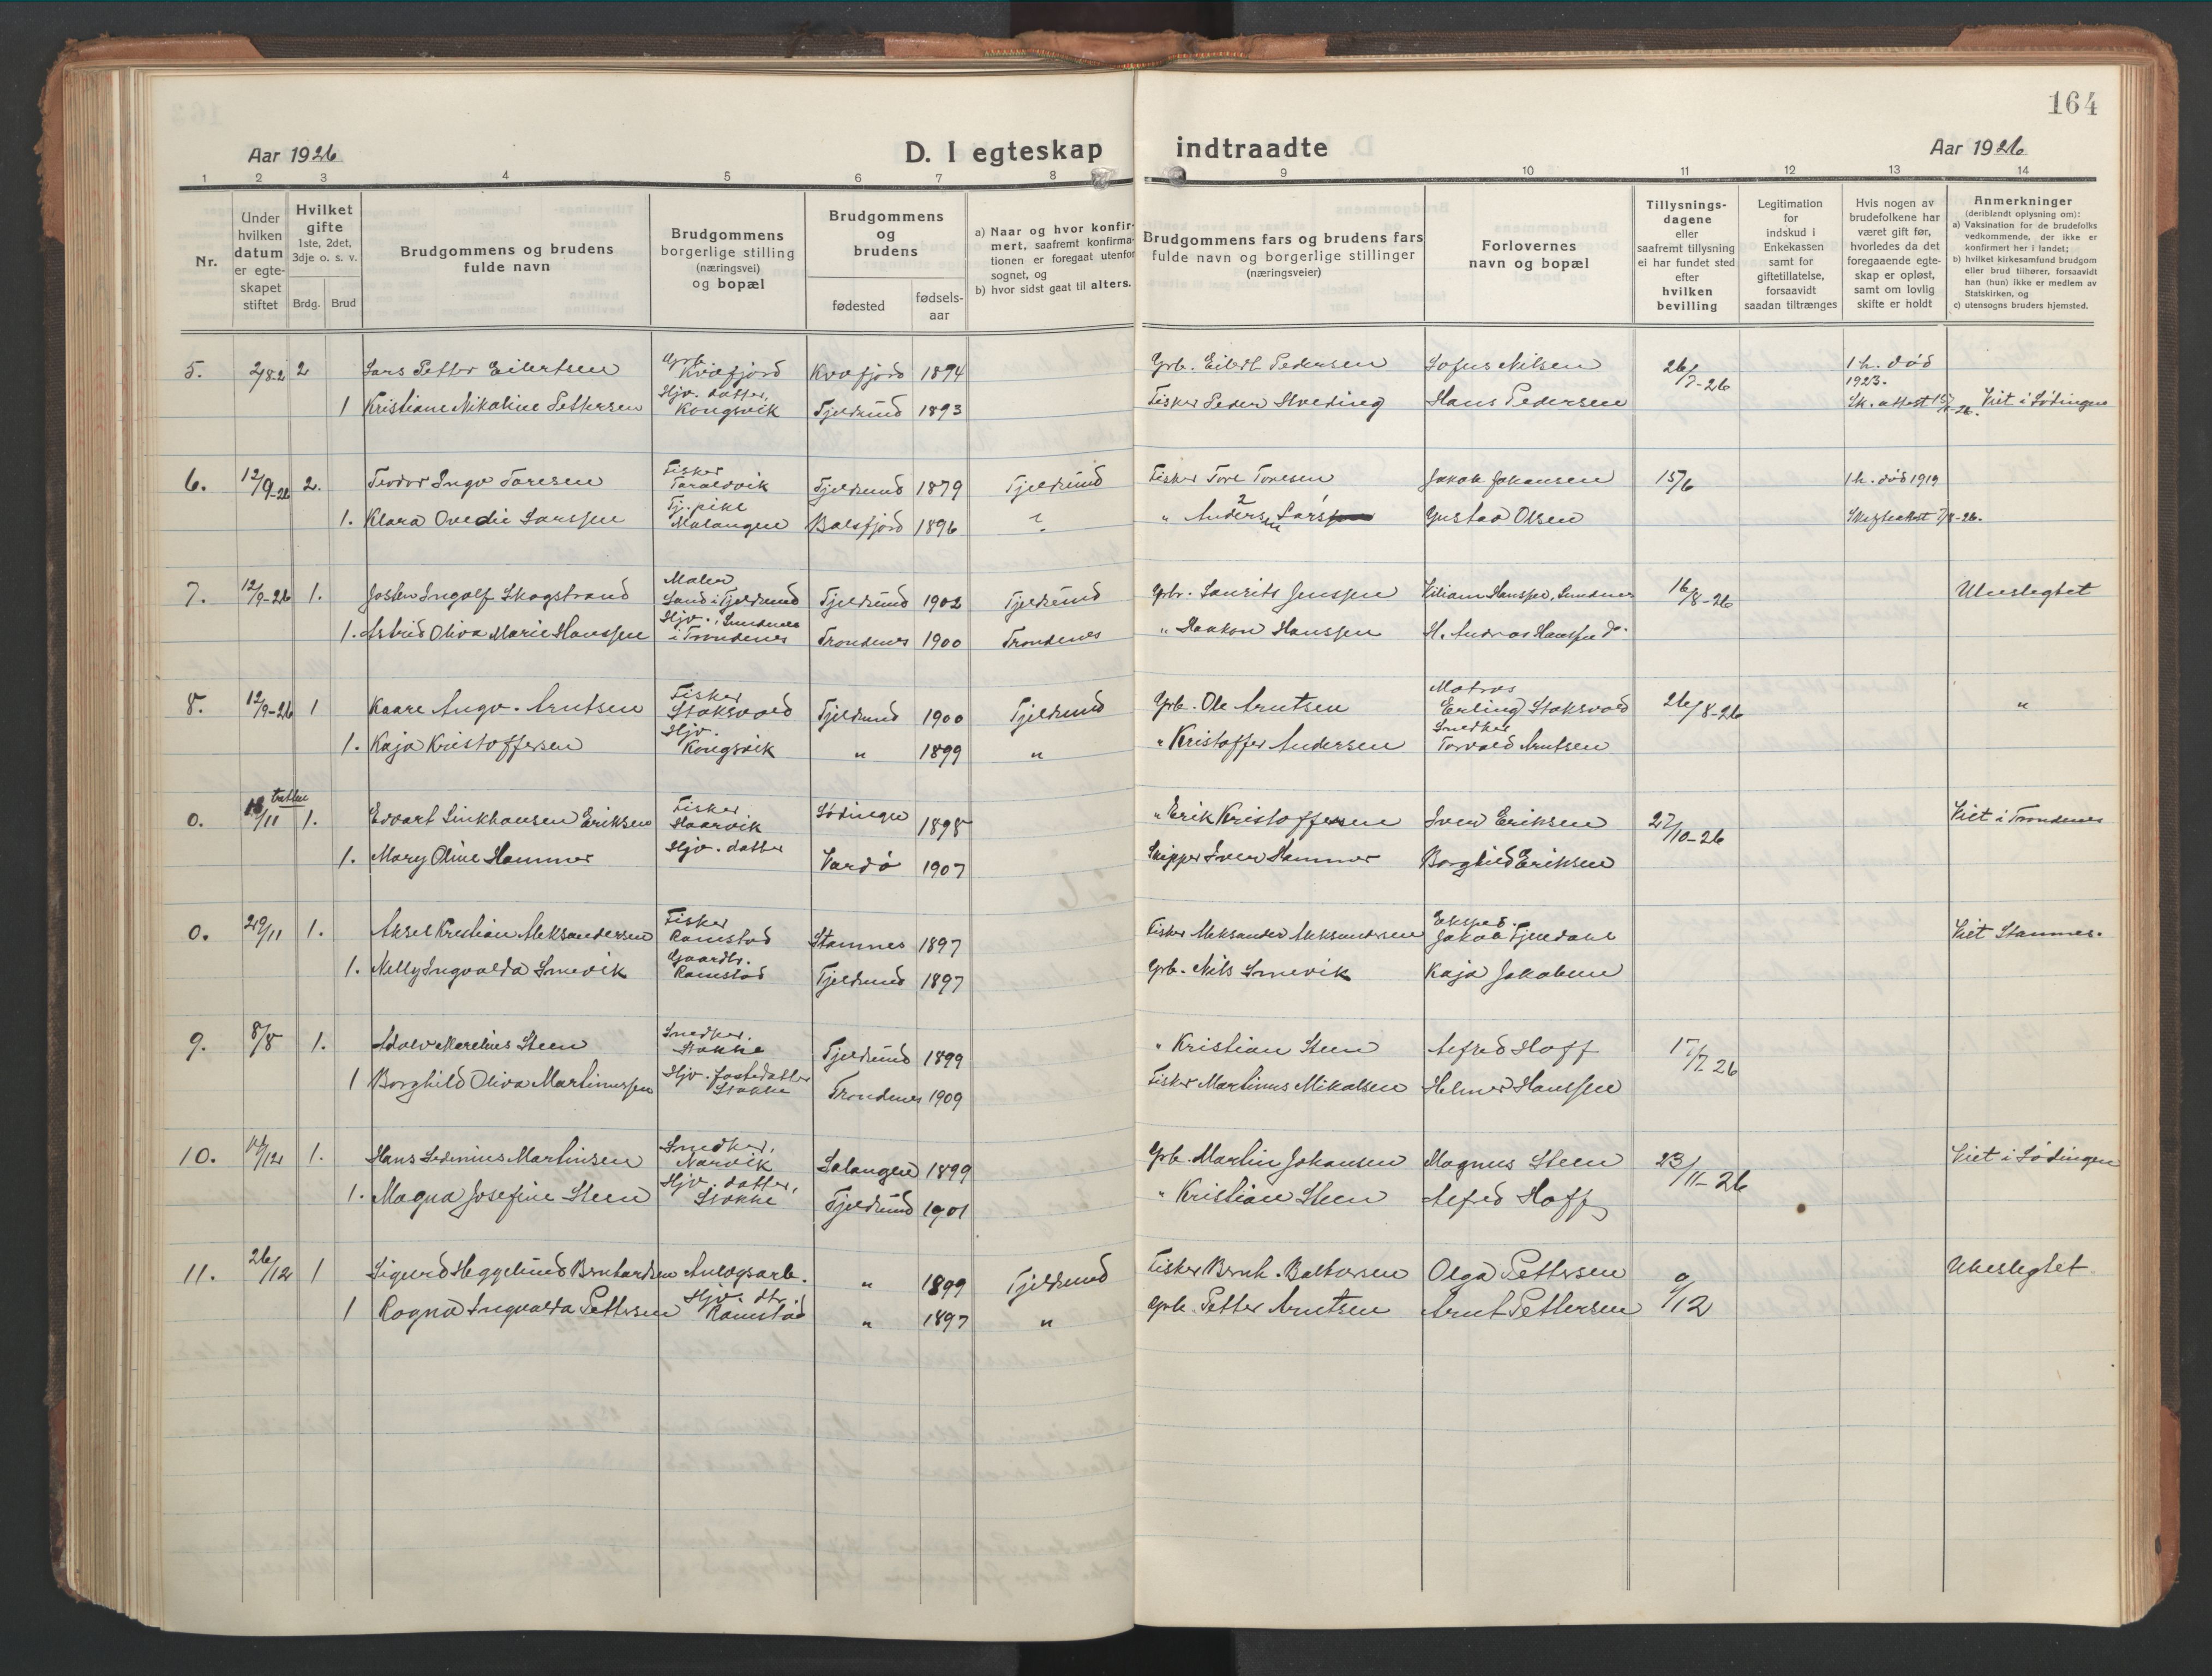 164
Aar 1926
D. I egteskap indtraadte
Aar 1926
1 2 3 4 5 6 7 8 9 10 11 12 13 14
Nr.
Under hvilken datum er egte-skapet stiftet
Hvilket gifte 1ste, 2det, 3dje o. s. v.
Brdg. Brud
Brudgommens og brudens fulde navn
Brudgommens borgerlige stilling (næringsvei) og bopæl
Brudgommens og brudens
fødested
fødsels-aar
a) Naar og hvor konfir-mert, saafremt konfirma-tionen er foregaat utenfor sognet, og
b) hvor sidst gaat til alters.
Brudgommens fars og brudens fars fulde navn og borgerlige stillinger (næringsveier)
Forlovernes navn og bopæl
Tillysnings-dagene eller saafremt tillysning ei har fundet sted efter hvilken bevilling
Legitimation for indskud i Enkekassen samt for giftetillatelse, forsaavidt saadan tiltrænges
Hvis nogen av brudefolkene har været gift før, hvorledes da det foregaaende egte-skap er opløst, samt om lovlig skifte er holdt
Anmerkninger (deriblandt oplysning om):
a) Vaksination for de brudefolks vedkommende, der ikke er konfirmert her i landet;
b) hvilket kirkesamfund brudgom eller brud tilhører, forsaavidt han (hun) ikke er medlem av Statskirken, og
c) utensogns bruders hjemsted.
5. 2/8-2 2 Lars Petter Eilertsen Grb. Kvæfjord Kvæfjord 1894 Grb. Eilert Pedersen Sofus Nilsen 26/7-26 1 h. død 1923.
1 Kristiane Nikoline Pettersen Hjv. datter, Kongsvik Tjeldsund 1893 Fisker Peder Hveding Hans Pedersen Sk. attest 15/ -26. Viet i Lødingen
6. 12/9-26 2. Teodor Ingv Toresen Fisker Taraldvik Tjeldsund 1879 Tjeldsund Fisker Tore Toresen Jakob Johansen 15/6 1 h. død 1919
1. Klara Ovedie Larssen Tj. pike Malangen Balsfjord 1896 ? " Anders Lars Gustav Olsen Skifteattest 7/8-26.
7. 12/9-26 1. Josten Ingolf Skogstrand Maler Sand i Tjeldsund Tjeldsund 1902 Tjeldsund Grbr. Laurits Jenssen Viliam Hanssen, Sundnes 16/8-26 Ubeslegtet
1. Astrid Oliva Marie Hanssen Hjv., Sundnes i Trondenes Trondenes 1900 Trondenes " Haakon Hanssen H. Andreas Hanssen do.
8. 12/9-26 1 Kaare Angv. Arntsen Fisker Staksvold Tjeldsund 1900 Tjeldsund Grb. Ole Arntsen Matros Erling Staksvold 26/8-26 "
1. Kaja Kristoffersen Hjv. Kongsvik " 1899 " " Kristoffer Andersen Snedker Torvald Arntsen
0. /11 1. Edvart Linkhausen Eriksen Fisker Haarvik Lødingen 1898 " Erik Kristoffersen Sven Eriksen 27/10-26 Viet i Trondenes
1. Mary Oline Hammer Hjv. datter Vardø 1907 Skipper Iver Hammer Borghild Eriksen
0. 29/11 1. Aksel Kristian Aleksandersen Fisker Ramstad Stamnes 1897 Fisker Aleksander Aleksandersen Eksped. Jakob Fjeldahl Viet Stamnes.
1. Nelly Ingvalda Smevik Gaardbr. Ramstad Tjeldsund 1897 Grb. Nils Smevik Kaja Jakobsen
9. 8/8 1. Adolv Marelius Steen Snedker. Stokke Tjeldsund 1899 " Kristian Steen Alfred Hoff 17/7 26
1 Borghild Oliva Martinussen Hjv. fosterdatter Stokke Trondenes 1909 Fisker Martinus Mikalsen Helmer Hanssen
10. /12 1. Hans Sedenius Martinsen Snedker, Narvik Salangen 1899 Grb. Martin Johansen Magnus Steen 23/11-26 Viet i Lødingen
1. Magna Josefine Steen Hjv. datter, Stokke Tjeldsund 1901 " Kristian Steen Alfred Hoff
11. 26/12 1 Sigurd Heggelund Bernhardsen Anlægsarb. " 1899 Tjeldsund Fisker Bernh. Baltersen Olga Pettersen 9/12 Ubeslegtet
1 Ragna Ingvalda Pettersen Hjv. dtr. Ramstad " 1897 " Grb. Petter Arntsen Arnt Pettersen